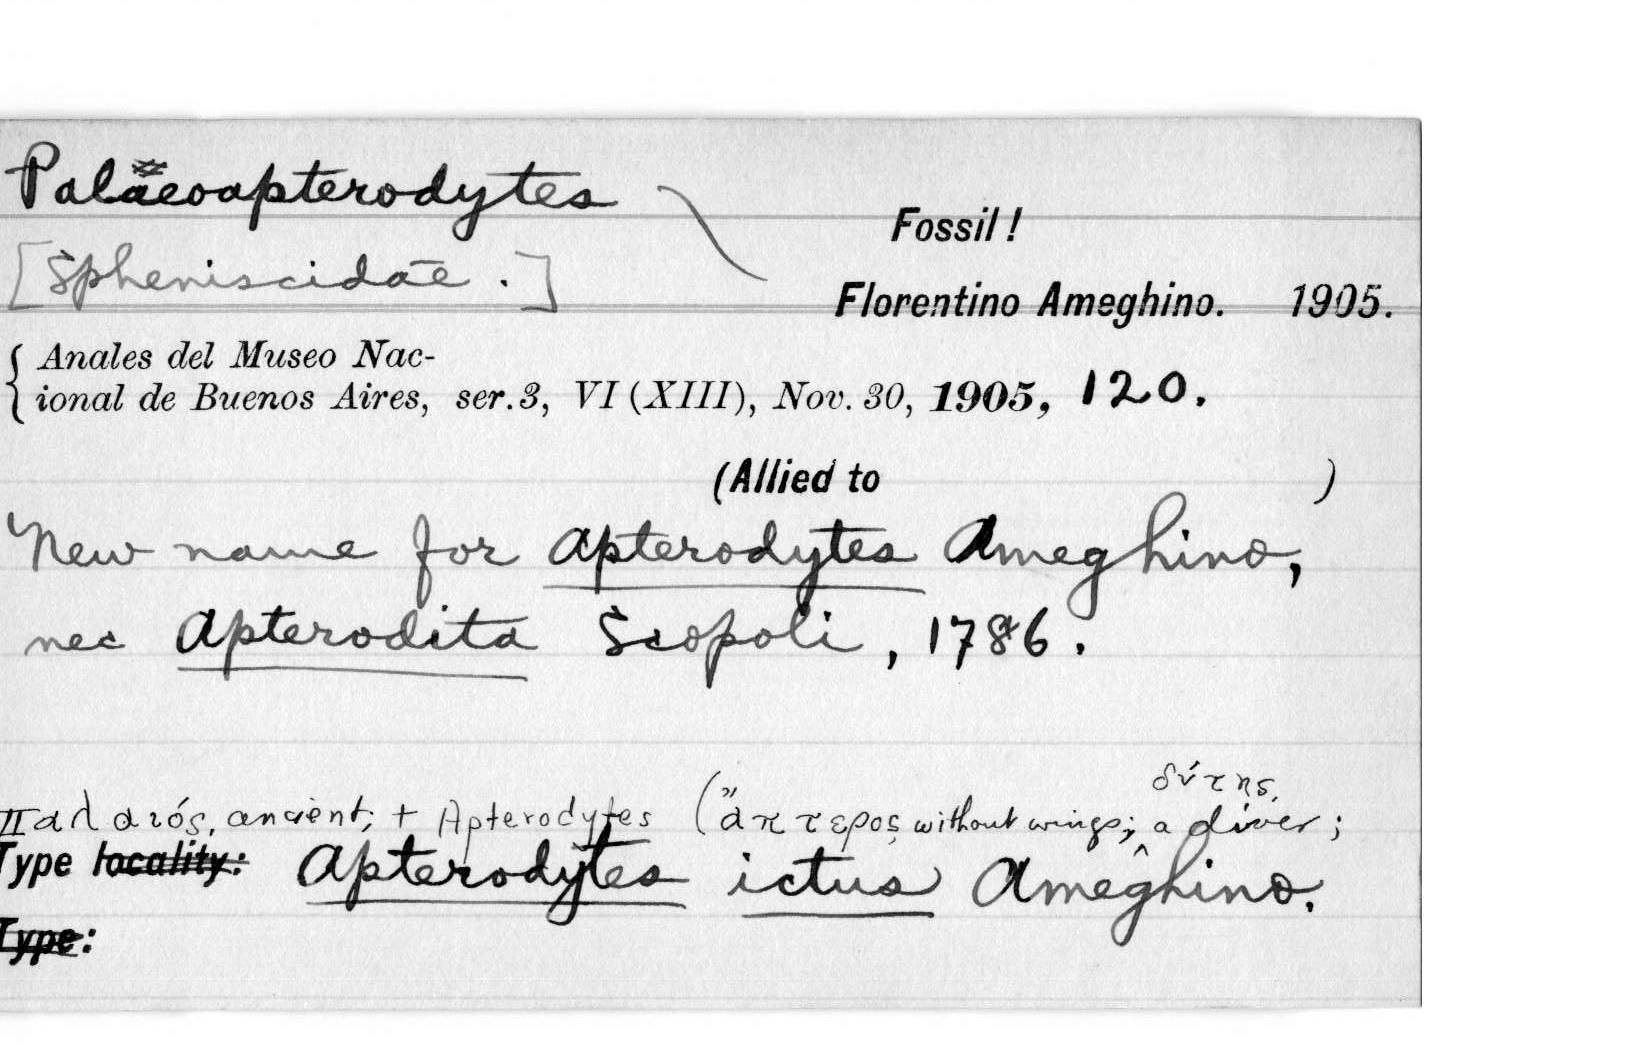 Palaeoapterodytes
Fossil!
[Spheniscidae.]
Florentino Ameghino. 1905.
{ Anales del Museo Nac-
ional de Buenos Aires, ser.3, VI (XIII), Nov. 30, 1905, 120.
(Allied to )
New name for Apterodytes Ameghino,
nec Apterodita Scopoli, 1786.
δύτης,
Παλαιός, ancient; + Apterodytes (ἄπτερος without wings; a diver;
Type locality: Apterodytes ictus Ameghino.
Type: